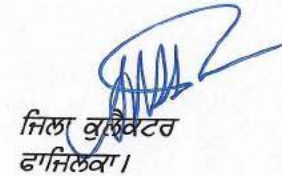 ਜਿਲਾ ਕੁਲੈਕਟਰ
ਫਾਜਿਲਕਾ।